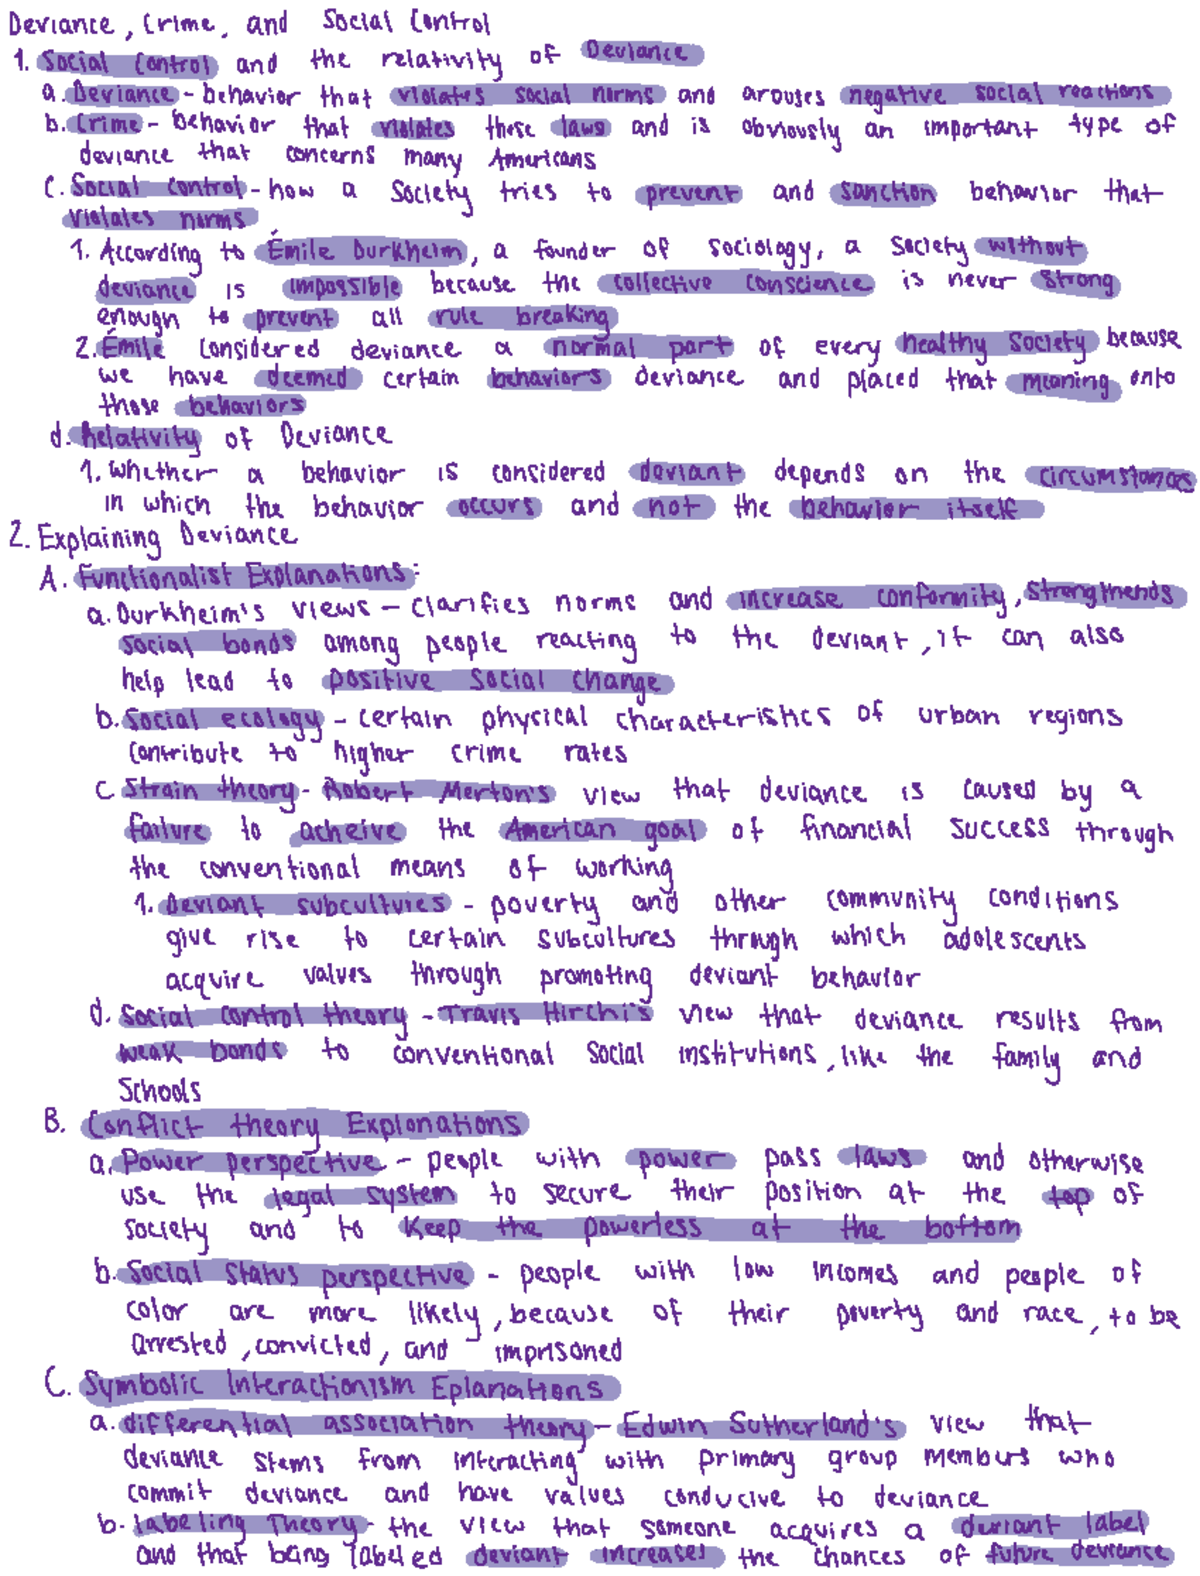 Deviance, Crime, and Social Control
1. Social Control and the relativity of Deviance
a. Deviance - behavior that violates social norms and arouses negative social reactions
b. Crime - behavior that violates these laws and is obviously an important type of
deviance that concerns many Americans
c. Social Control - how a society tries to prevent and sanction behavior that
violates norms
1. According to Émile Durkheim, a founder of sociology, a society without
deviance is impossible because the collective conscience is never strong
enough to prevent all rule breaking
2. Émile considered deviance a normal part of every healthy society because
we have deemed certain behaviors deviance and placed that meaning onto
those behaviors
d. Relativity of Deviance
1. Whether a behavior is considered deviant depends on the circumstances
in which the behavior occurs and not the behavior itself
2. Explaining Deviance
A. Functionalist Explanations:
a. Durkheim's views - clarifies norms and increase conformity, strengthends
social bonds among people reacting to the deviant, it can also
help lead to positive social change
b. Social ecology - certain physical characteristics of urban regions
contribute to higher crime rates
c Strain theory - Robert Merton's view that deviance is caused by a
failure to acheive the American goal of financial success through
the conventional means of working
1. Deviant subcultures - poverty and other community conditions
give rise to certain subcultures through which adolescents
acquire values through promoting deviant behavior
d. Social control theory - Travis Hirchi's view that deviance results from
weak bonds to conventional social institutions, like the family and
schools
B. Conflict theory Explanations
a. Power perspective - people with power pass laws and otherwise
use the legal system to secure their position at the top of
society and to keep the powerless at the bottom
b. Social Status perspective - people with low incomes and people of
color are more likely, because of their poverty and race, to be
arrested, convicted, and imprisoned
C. Symbolic Interactionism Eplanations
a. differential association theory - Edwin Sutherland's view that
deviance stems from interacting with primary group members who
commit deviance and have values conducive to deviance
b. labeling Theory - the view that someone acquires a deviant label
and that being labeled deviant increases the chances of future deviance